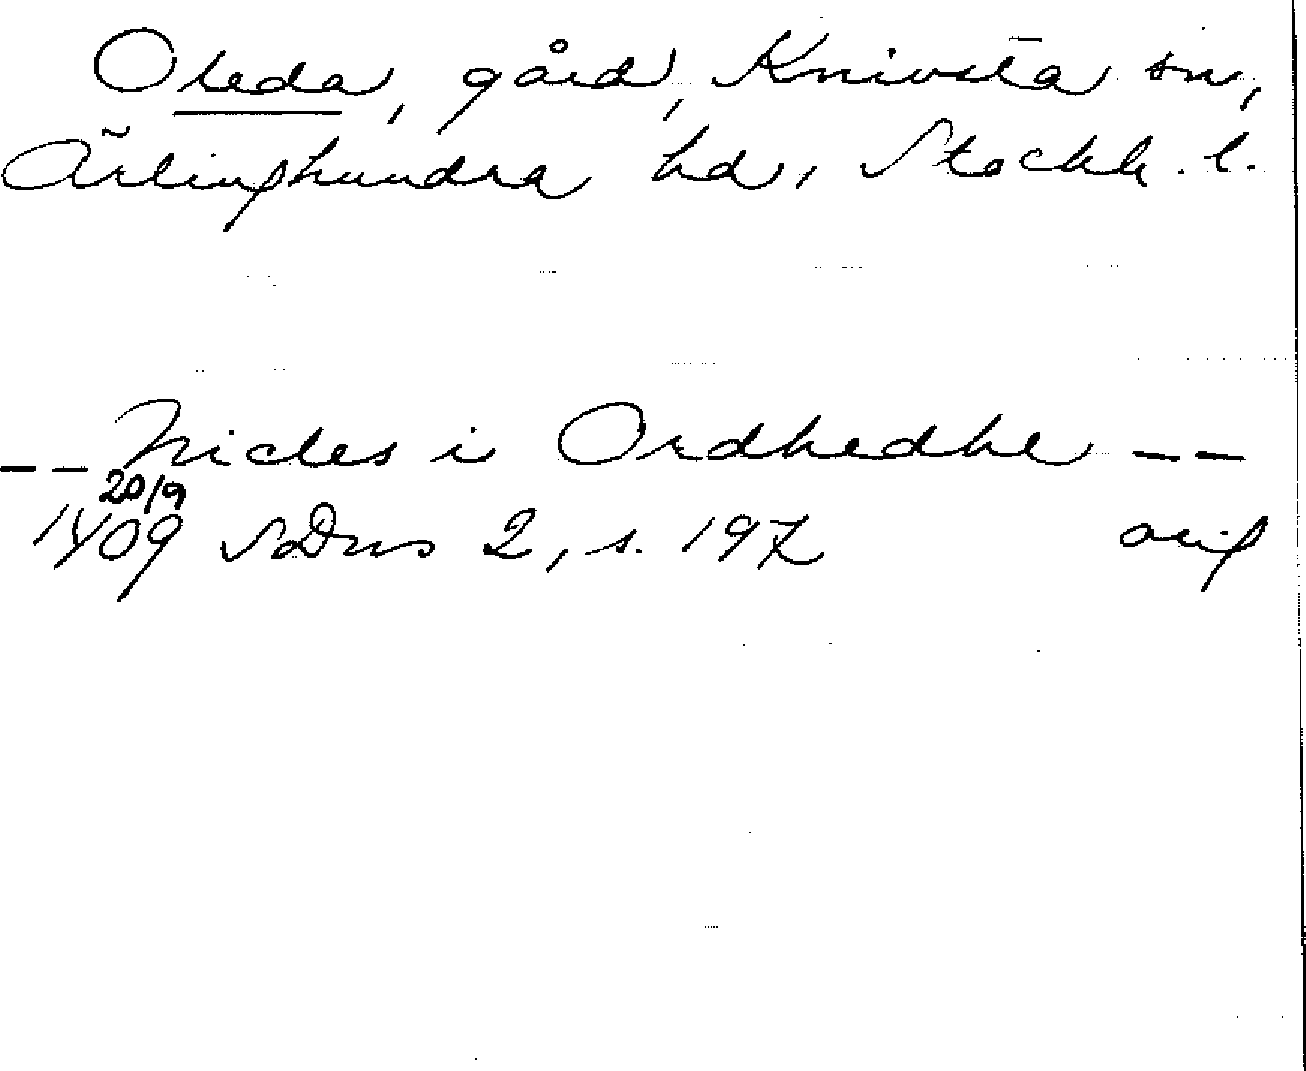 Oreda, gård, Knivsta sn,
Ärlinghundra hd, Stockh. l.
-- Nicles i Ordhedhe --
20/9
1409 SvDns 2, s. 197 orig